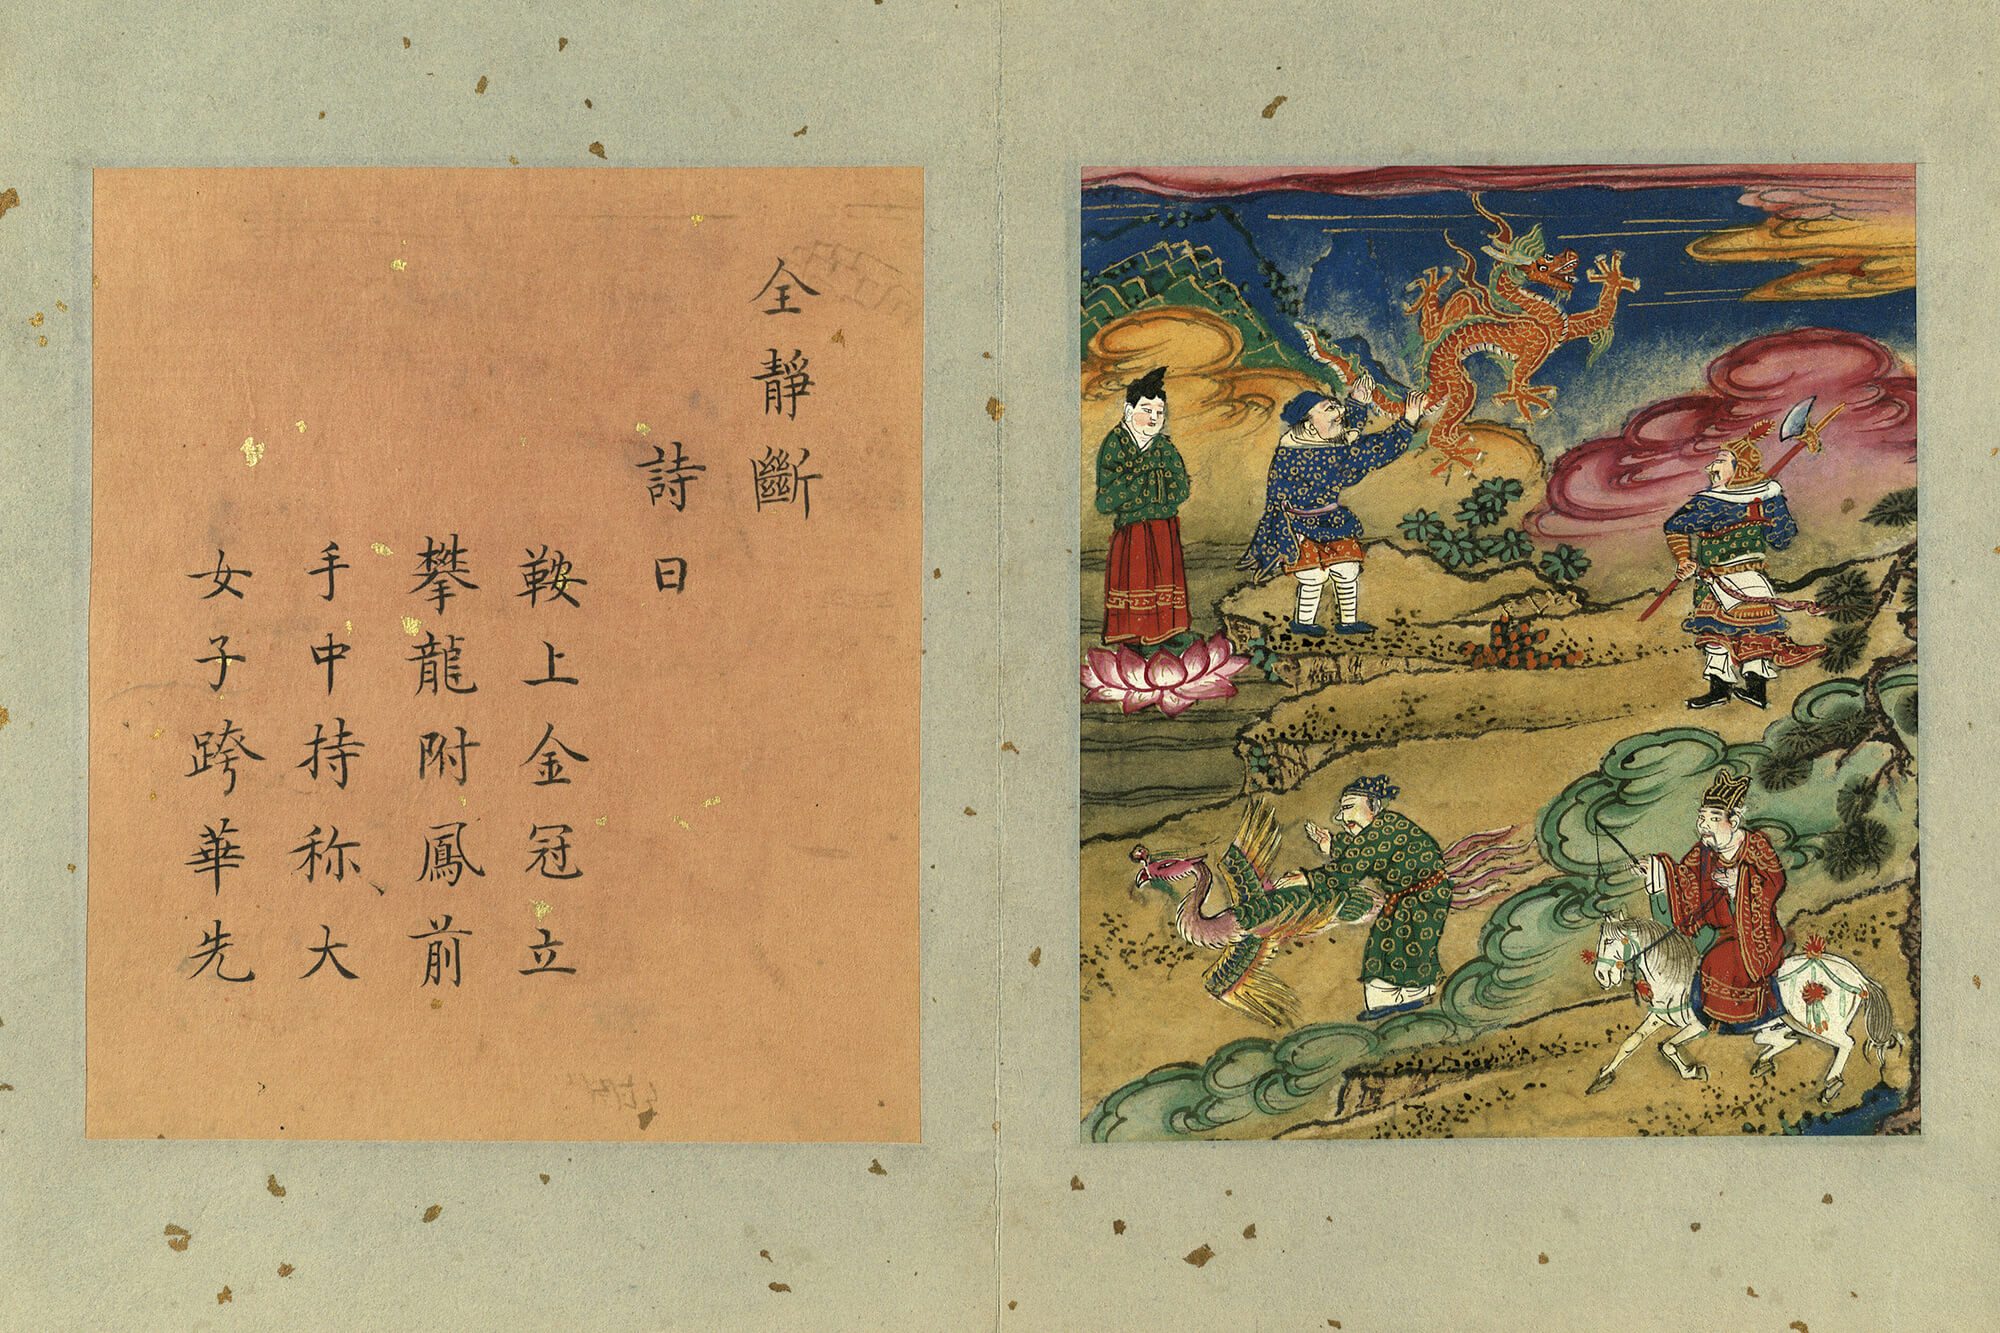 全靜斷
詩曰
鞍上金冠立
攀龍附鳳前
手中持称大
女子跨華先